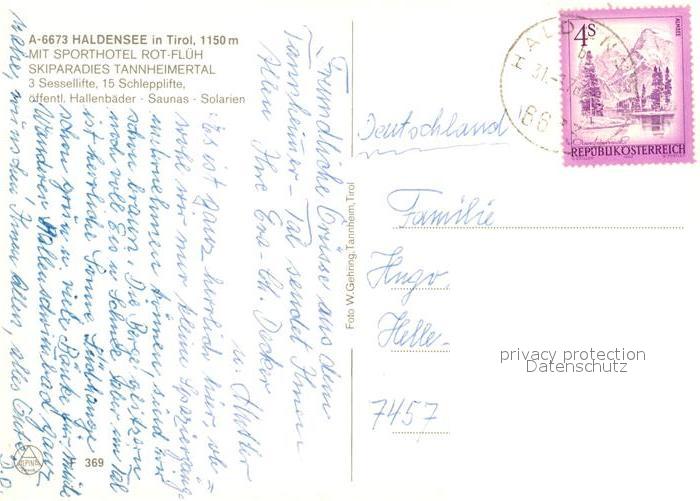 A-6673 HALDENSEE in Tirol, 1150 m
MIT SPORTHOTEL ROT-FLÜH
SKIPARADIES TANNHEIMERTAL
3 Sessellifte, 15 Schlepplifte,
öffentl. Hallenbäder · Saunas · Solarien
Freundliche Grüsse aus dem
Tannheimer-Tal sendet Ihnen
Allen Ihre Eva-
u. Mutter
Es ist ganz herrlich hier, ob-
wohl wir nur kleine Spaziergänge
unternehmen können, sind wir
schon braun. Die Berge glitzern
noch voll Eis u. Schnee aber im Tal
ist herrliche Sonne
schon grün u. viele Bänke für müde
Wanderer. Hallenschwimmbad ganz
Nähe, wünschen Ihnen Allen, alles Gute,
Foto W. Gehring, Tannheim, Tirol
ALPINA
369
4S
ALMSEE
REPUBLIK ÖSTERREICH
HALD
66
Deutschland
Familie
Hugo
Helle-
7457
privacy protection
Datenschutz